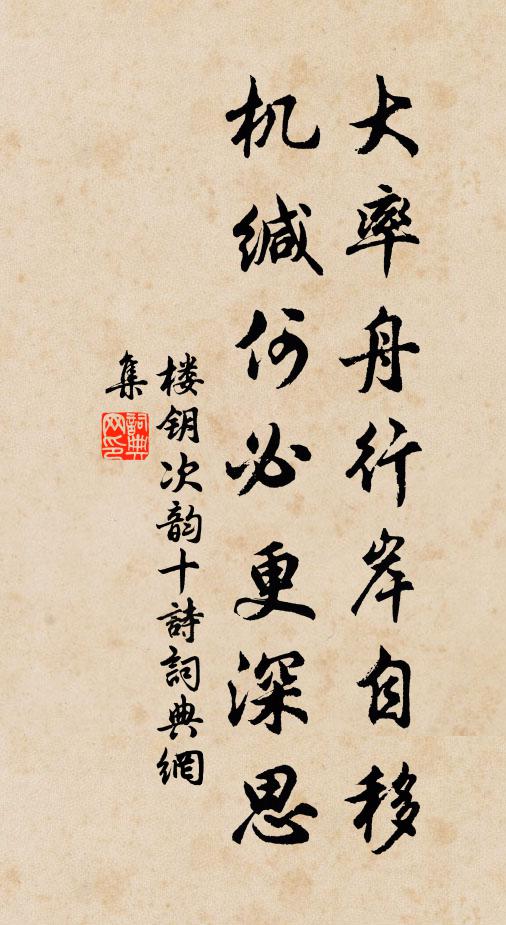 大率舟行岸自移
机缄何必更深思
楼钥次韵十詩詞典網
集
詞典
网印